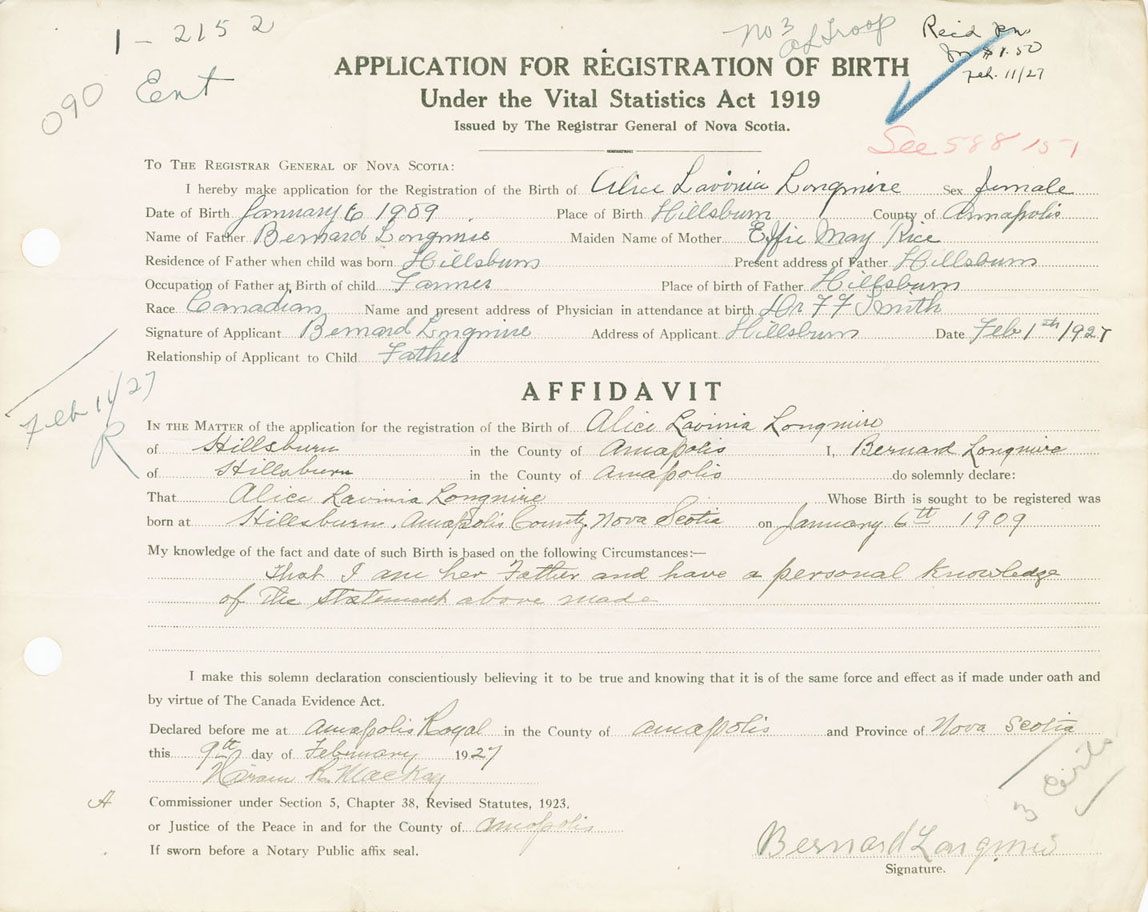 1 - 2152
No 3
Reid
$1.50
Feb. 11/27
090
Ent
APPLICATION FOR REGISTRATION OF BIRTH
Under the Vital Statistics Act 1919
Issued by The Registrar General of Nova Scotia.
See 588 151
TO THE REGISTRAR GENERAL OF NOVA SCOTIA:
I hereby make application for the Registration of the Birth of Alice Lavinia Longmire Sex female
Date of Birth January 6 1909 Place of Birth Hillsburn County of Annapolis
Name of Father Bernard Longmire Maiden Name of Mother Effie May Rice
Residence of Father when child was born Hillsburn Present address of Father Hillsburn
Occupation of Father at Birth of child Farmer Place of birth of Father Hillsburn
Race Canadian Name and present address of Physician in attendance at birth Dr F F Smith
Signature of Applicant Bernard Longmire Address of Applicant Hillsburn Date Feb 1th 1927
Relationship of Applicant to Child Father
Feb 11/27
R
AFFIDAVIT
IN THE MATTER of the application for the registration of the Birth of Alice Lavinia Longmire
of Hillsburn in the County of Annapolis I, Bernard Longmire
of Hillsburn in the County of Annapolis do solemnly declare:
That Alice Lavinia Longmire Whose Birth is sought to be registered was
born at Hillsburn, Annapolis County, Nova Scotia on January 6th 1909
My knowledge of the fact and date of such Birth is based on the following Circumstances:—
That I am her Father and have a personal knowledge
of the statement above made
I make this solemn declaration conscientiously believing it to be true and knowing that it is of the same force and effect as if made under oath and
by virtue of The Canada Evidence Act.
Declared before me at Annapolis Royal in the County of Annapolis and Province of Nova Scotia
this 9th day of February 1927
Hiram R. MacKay
3 Certs
A Commissioner under Section 5, Chapter 38, Revised Statutes, 1923.
or Justice of the Peace in and for the County of Annapolis
If sworn before a Notary Public affix seal.
Bernard Longmire
Signature.